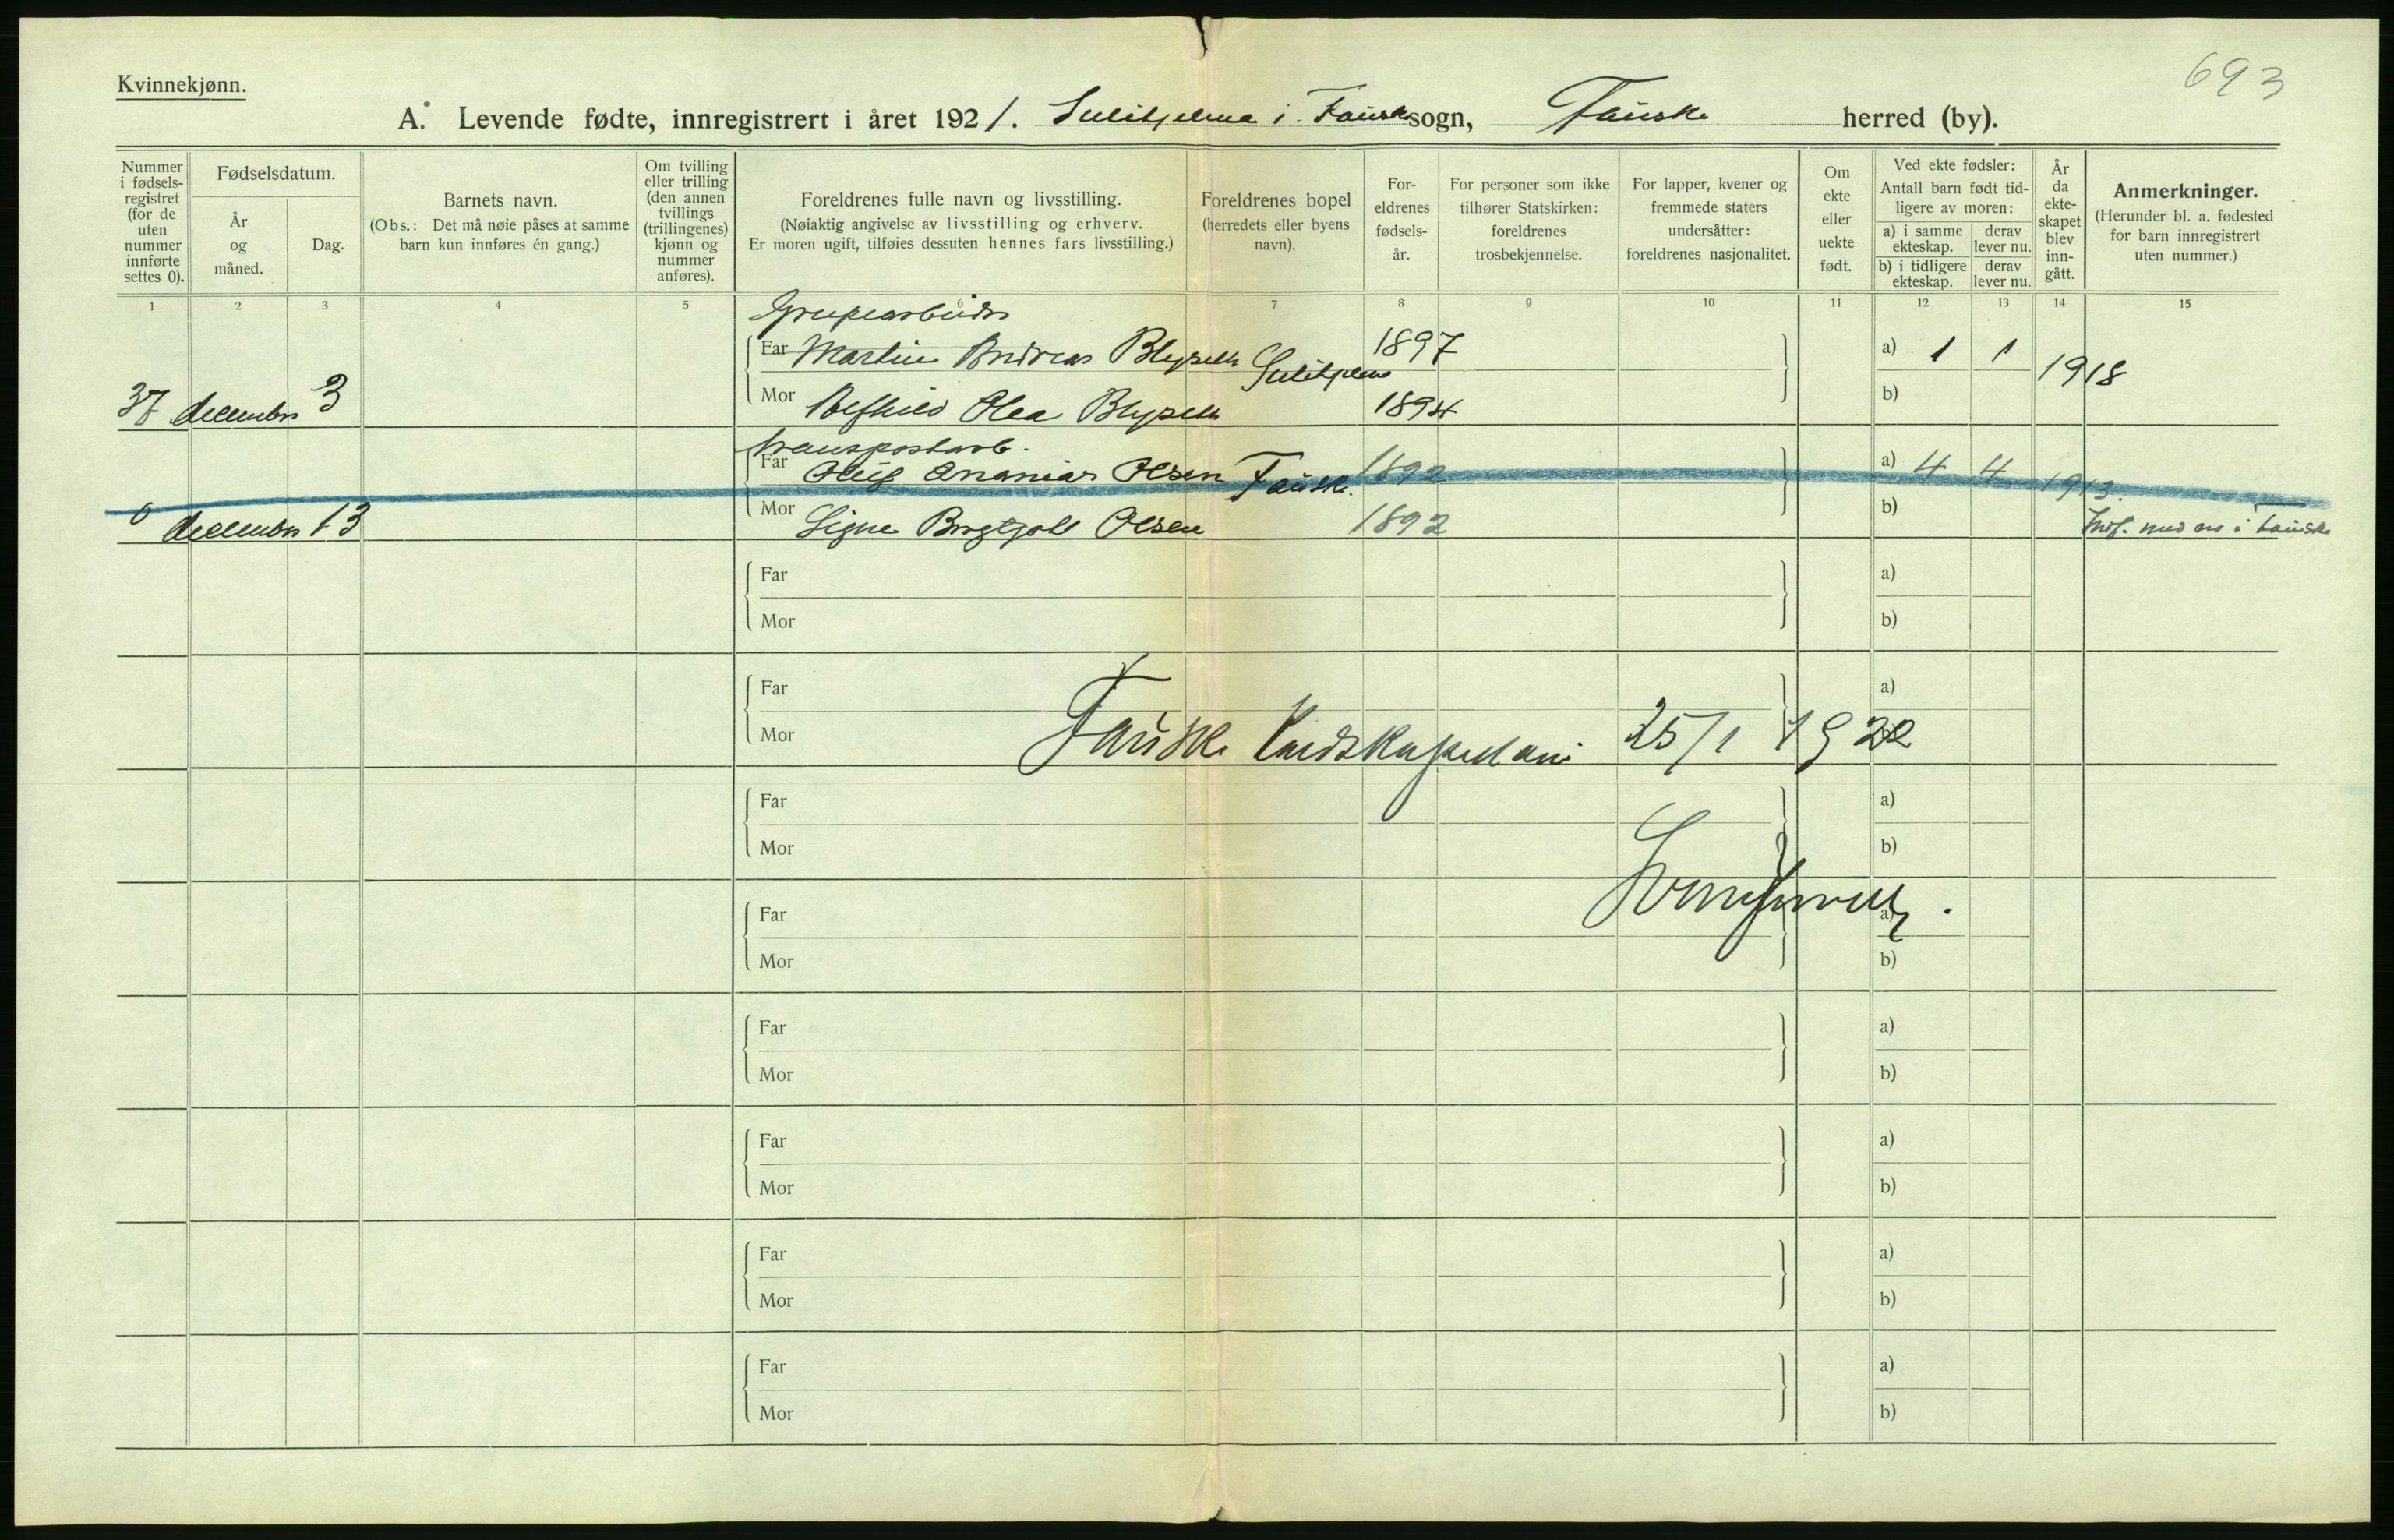 693
Kvinnekjønn.
A. Levende fødte, innregistrert i året 1921. Sulitjelma i Fauske sogn, Fauske herred (by).
Nummer i fødsels-registret (for de uten nummer innførte settes 0).
Fødselsdatum.
År og måned.
Dag.
Barnets navn.
(Obs.: Det må nøie påses at samme barn kun innføres én gang.)
Om tvilling eller trilling (den annen tvillings (trillingenes) kjønn og nummer anføres).
Foreldrenes fulle navn og livsstilling.
(Nøiaktig angivelse av livsstilling og erhverv.
Er moren ugift, tilføies dessuten hennes fars livsstilling.)
Foreldrenes bopel
(herredets eller byens navn).
For-eldrenes fødsels-år.
For personer som ikke tilhører Statskirken: foreldrenes trosbekjennelse.
For lapper, kvener og fremmede staters undersåtter: foreldrenes nasjonalitet.
Om ekte eller uekte født.
Ved ekte fødsler:
Antall barn født tid-ligere av moren:
a) i samme ekteskap.
derav lever nu.
b) i tidligere ekteskap.
derav lever nu.
År da ekte-skapet blev inn-gått.
Anmerkninger.
(Herunder bl. a. fødested for barn innregistrert uten nummer.)
1 2 3 4 5 6 7 8 9 10 11 12 13 14 15
Grubearbeider
Far Martin Andreas Blypseth Sulitjelma 1897 a) 1 1 1918
37 december 3
Mor Olea Blypseth 1894 b)
transportarb.
Far Oluf Ananias Olsen Fauske. 1892 a) 4 4 1913.
0 december 13
Mor Signe Bergtjolt Olsen 1892 b) Indf. med no i Fauske
Far a)
Mor b)
Far a)
Mor b)
Fauske 25/1 1922
Far a)
Mor b)
Far a)
Mor b)
Far a)
Mor b)
Far a)
Mor b)
Far a)
Mor b)
Far a)
Mor b)